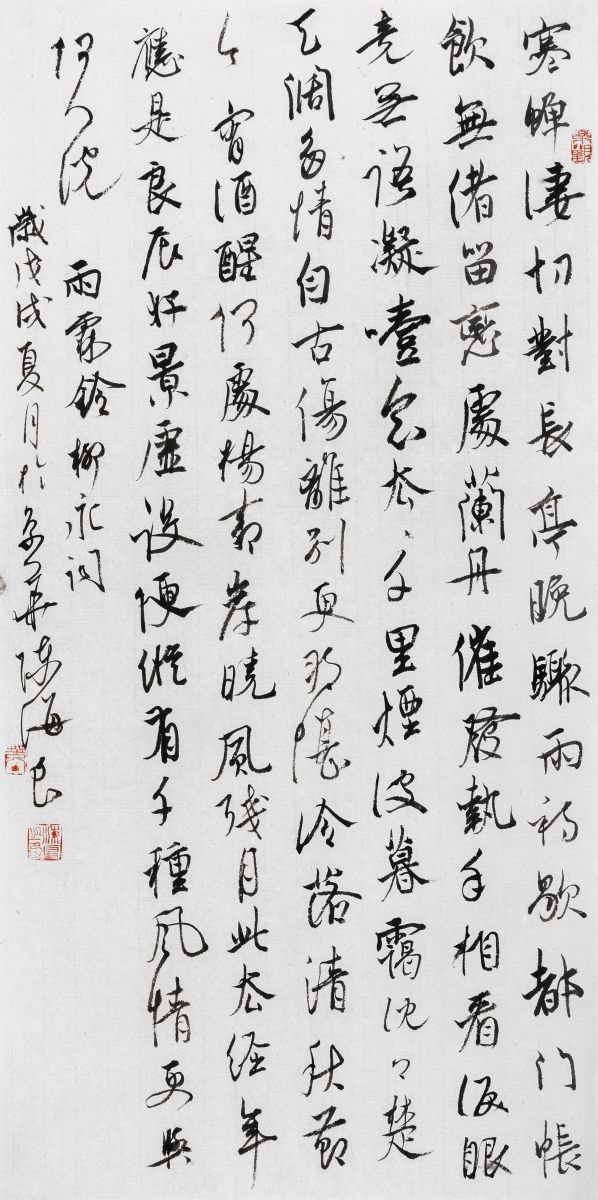 寒蟬淒切對長亭晚驟雨初歇都門帳
飲無緒留戀處蘭舟催發執手相看淚眼
竟无語凝噎念去々千里煙波暮靄沈々楚
天闊多情自古傷離別更那堪冷落清秋節
今宵酒醒何處楊柳岸曉風殘月此去經年
應是良辰好景虛設便縱有千種風情更與
何人說
雨霖鈴柳永詞
歲戊戌夏月於京華陳海良